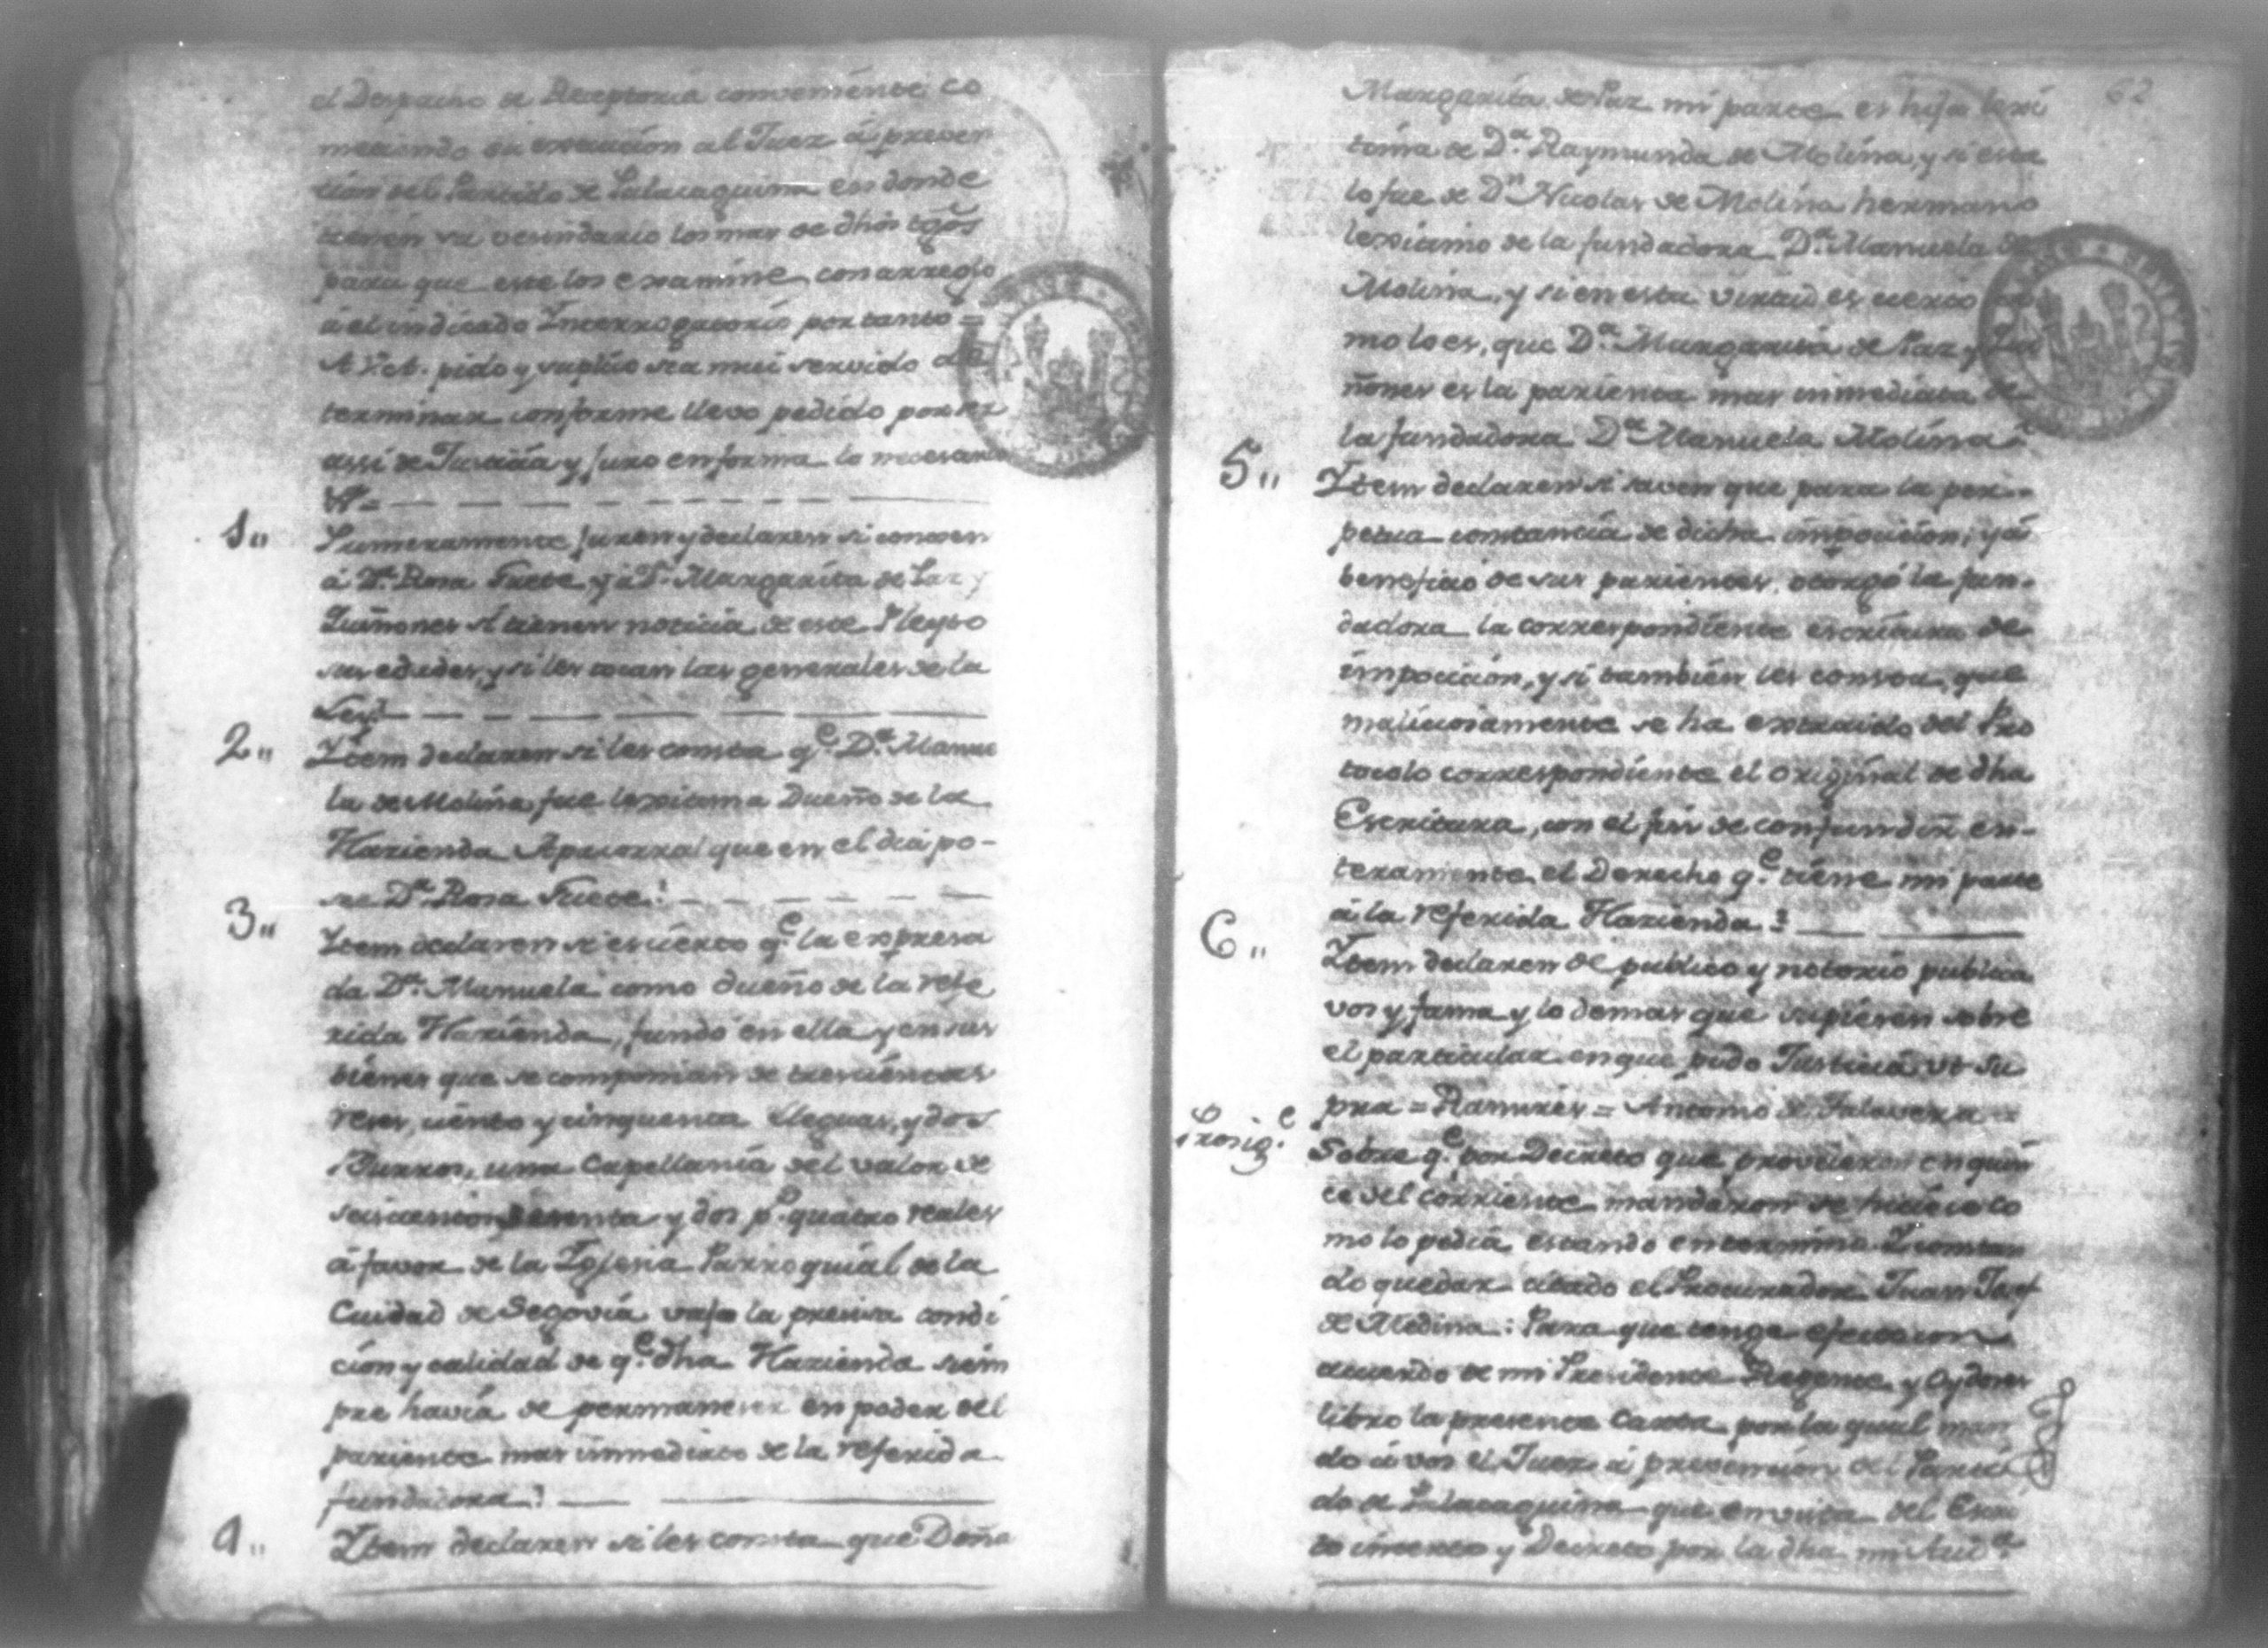 el Despacho de Receptoria conveniente co
metiendo su execucion al Juez á preven
cion del Partido de Palacaguina en donde
tienen su vecindario los mas de dhos tgos
para que este los examine con arreglo
á el indicado Interrogatorio por tanto =
A V.A. pido y suplico sea mui servido de
terminar conforme llevo pedido por ser
assi de Justicia y juro en forma lo necesario
1,,
Primeramente juren y declaren si conocen
á Da. Rosa Frete, y á Da. Margarita de Paz y
Quiñones si tienen noticia de este Pleyto
sus edades, y si les tocan las generales de la
Ley?
2,,
Itten declaren si les consta qe. Da. Manue
la de Molina fue lexitima Dueño de la
Hazienda Apacorral que en el dia po-
see Da. Rosa Frete?
3,,
Itten declaren si es cierto qe. la expresa
da Da. Manuela como dueño de la refe
rida Hazienda, fundó en ella y en sus
bienes que se componian de trescientas
reses, ciento y cinquenta lleguas, y dos
Burros, una Capellania del valor de
seiscientos y dos ps. quatro reales
á favor de la Iglesia Parroquial de la
Cuidad de Segovia vajo la precisa condi
cion y calidad de qe. dha Hazienda siem
pre havia de permanecer en poder del
pariente mas immediato de la referida
fundadora?
4,,
Itten declaren si les consta que Doña
62
Margarita de Paz mi parte es hija lexi
tima de Da. Raymunda de Molina, y si esta
lo fue de Dn. Nicolas de Molina hermano
lexitimo de la fundadora Da. Manuela de
Molina, y si en esta virtud es cierto co
mo lo es, que Da. Margarita de Paz y Qui
ñones es la parienta mas inmediata de
la fundadora Da. Manuela Molina?
5,,
Itten declaren si saven que para la per-
petua constancia de dicha imposicion, y á
beneficio de sus parientes, otorgó la fun-
dadora la correspondiente escritura de
imposicion, y si tambien les consta, que
maliciosamente se ha extraido del Pro
tocolo correspondiente el original de dha
Escritura, con el fin de confundir en-
teramente el Derecho qe. tiene mi parte
á la referida Hazienda?
6,,
Itten declaren de publico y notorio publica
vos y fama y lo demas que supieren sobre
el particular en que pido Justicia ut su
pra = Ramires = Antonio de Talavera =
Prosige.
Sobre qe. por Decreto que proveieron en quin
ce del corriente mandaron se hiciese co
mo lo pedia estando en termino I constan
do quedar citado el Procurador Juan Josef
de Medina: Para que tenga efecto con
acuerdo de mi Presidente Regente, y Oydores
libro la presente Carta por la qual man
do á vos el Juez á prevencion del Parti
do de Palacaguina que en vista del Escri
to inserto y Decreto por la dha mi Auda.